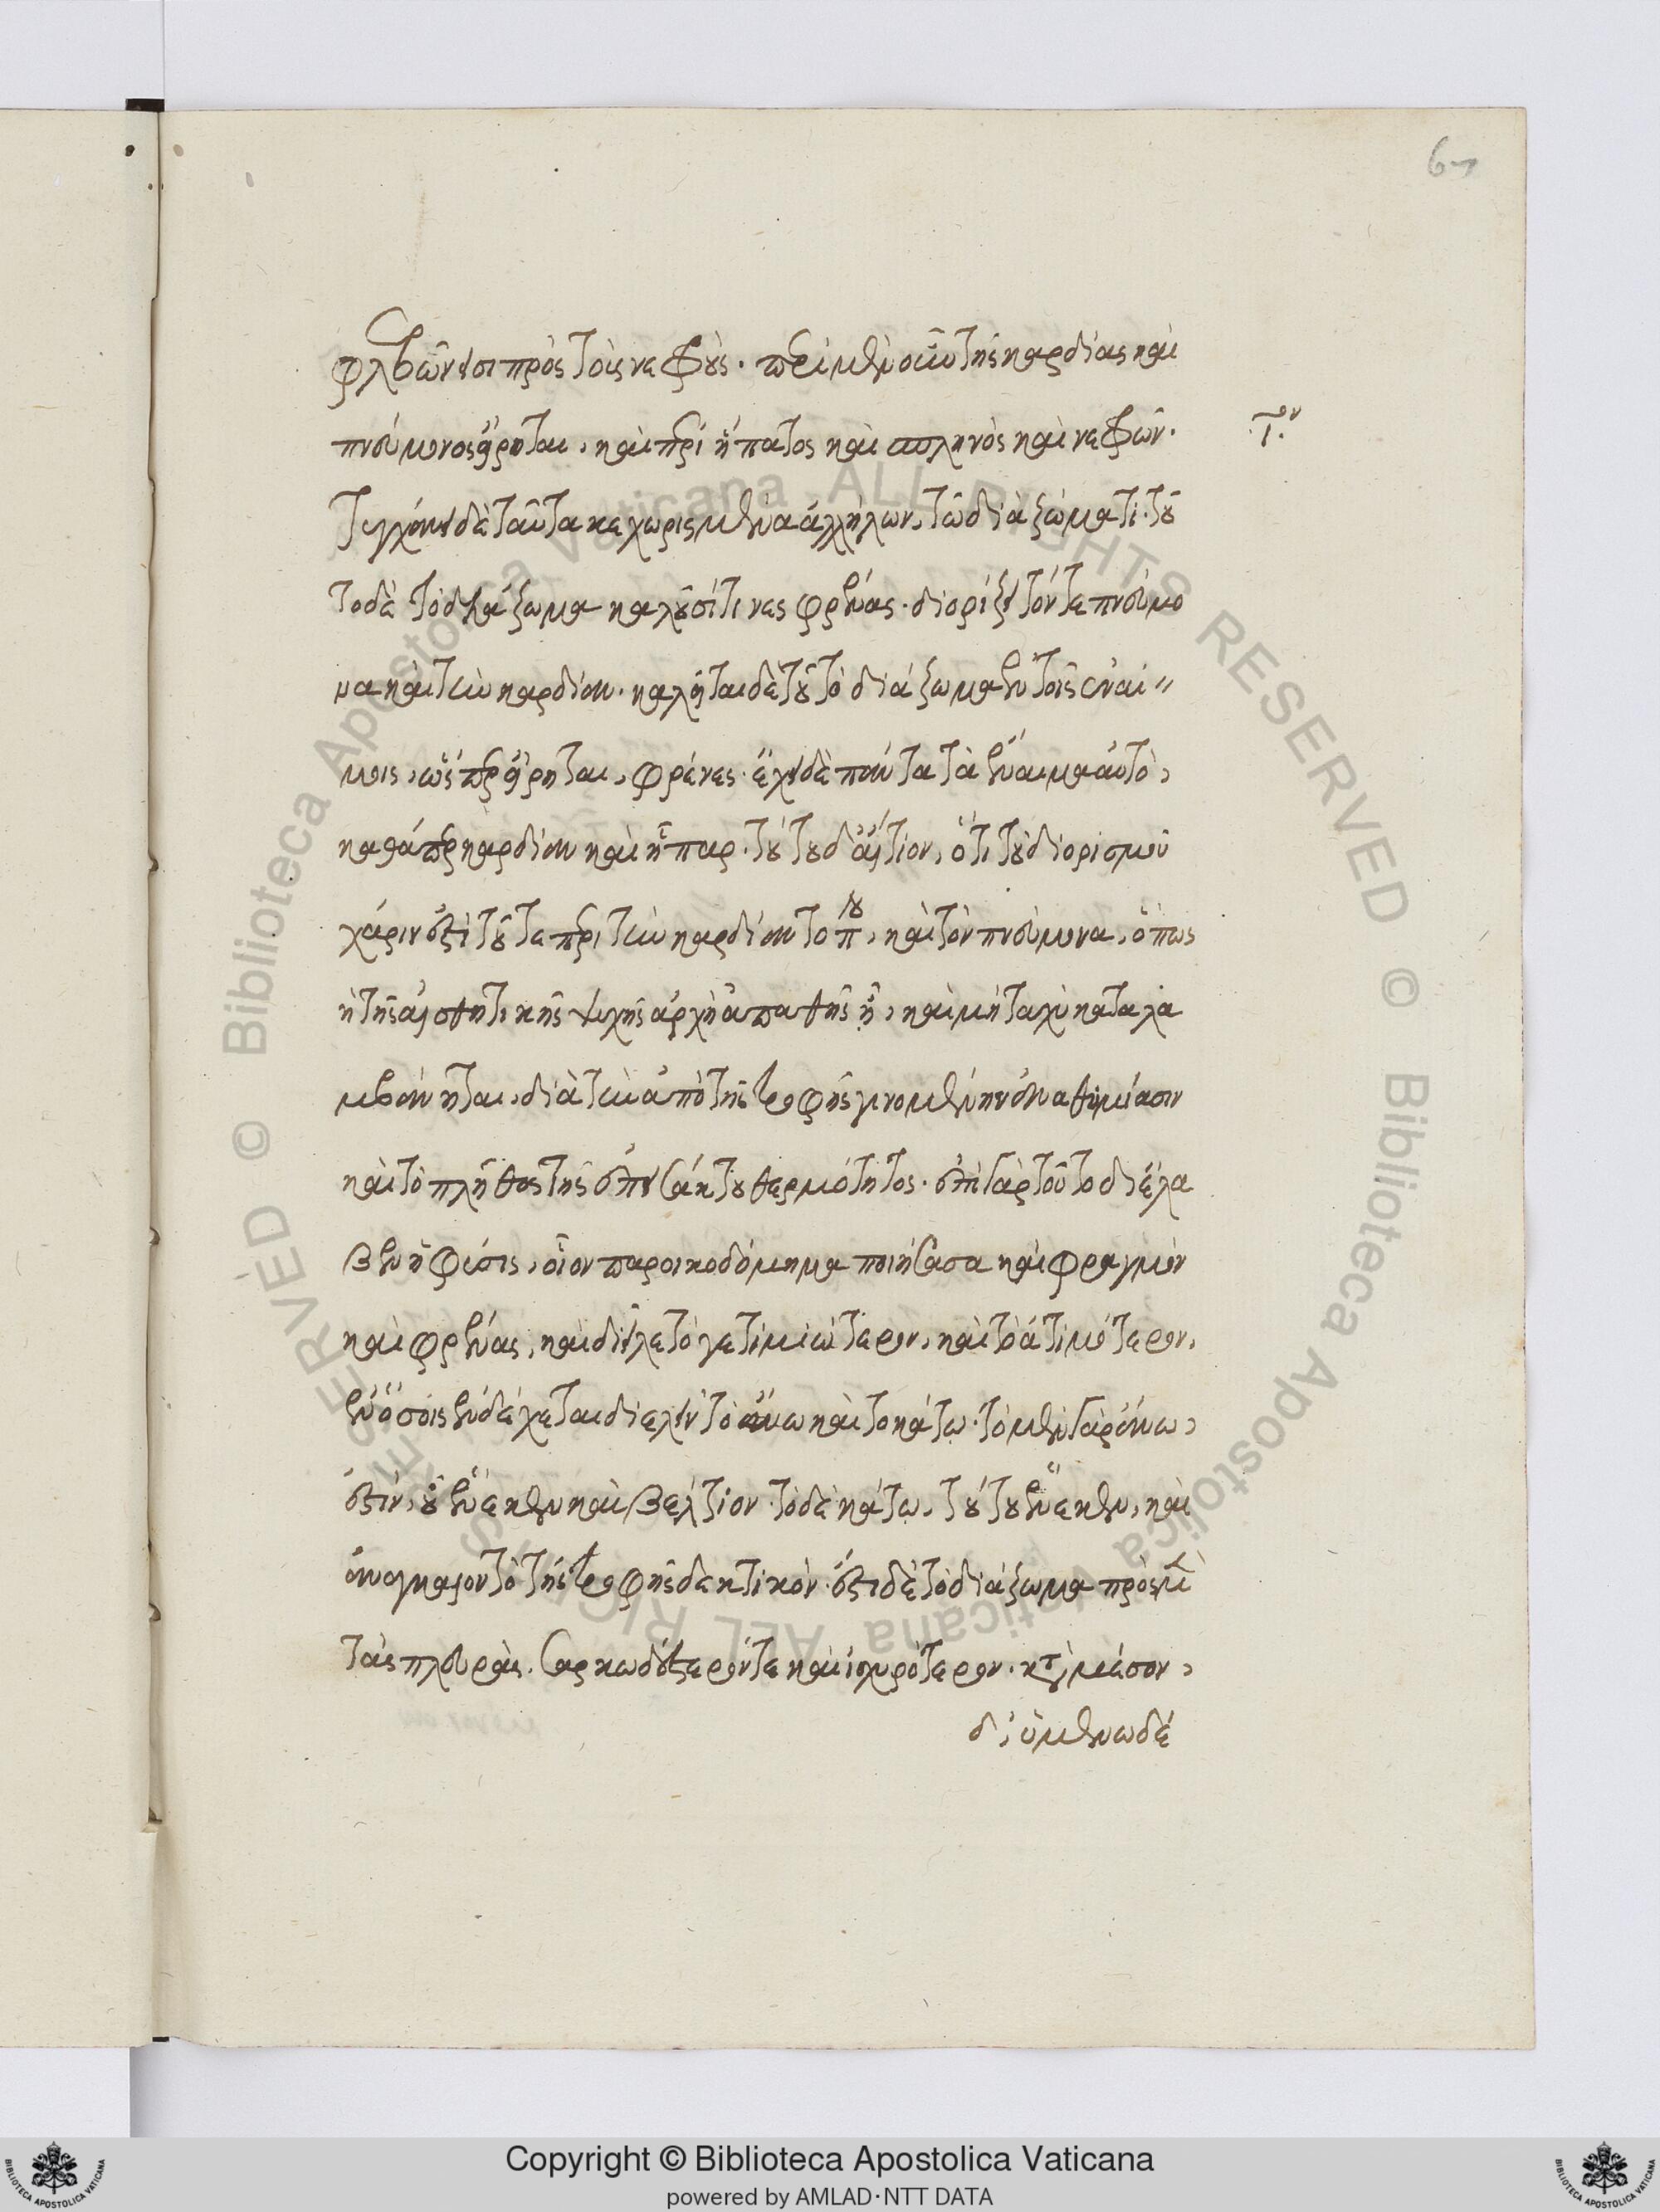 67
φλεβῶν εἰσι πρὸς τοῖς νεφροῖς. περὶ μὲν οὖν τῆς καρδίας καὶ
πνεύμονος εἴρηται, καὶ περὶ ἥπατος καὶ σπληνὸς καὶ νεφρῶν.
τυγχάνει δὲ ταῦτα κεχωρισμένα ἀλλήλων, τῷ διαζώματι. τοῦ
το δὲ τὸ διάζωμα καλοῦσί τινες φρένας. διορίζει τόν τε πνεύμο
να καὶ τὴν καρδίαν. καλεῖται δὲ τοῦτο διάζωμα ἐν τοῖς ἐναί〃
μοις, ὥσπερ εἴρηται, φρένες. ἔχει δὲ πάντα τὰ ἔναιμα αὐτὸ,
καθάπερ καρδίαν καὶ ἧπαρ. τούτου δ' αἴτιον, ὅτι τοῦ διορισμοῦ
χάριν ἐστὶ τοῦ τε περὶ τὴν καρδίαν τόπου, καὶ τὸν πνεύμονα, ὅπως
ἡ τῆς αἰσθητικῆς ψυχῆς ἀρχὴ ἀπαθὴς ᾖ, καὶ μὴ ταχὺ καταλα
μβάνηται, διὰ τὴν ἀπὸ τῆς τροφῆς γινομένην ἀναθυμίασιν
καὶ τὸ πλῆθος τῆς ἐπεισάκτου θερμότητος. ἐπὶ γὰρ τοῦτο διέλα
βεν ἡ φύσις, οἷον παροικοδόμημα ποιήσασα καὶ φραγμὸν
καὶ φρένας, καὶ διεῖλε τό γε τιμιώτερον, καὶ τὸ ἀτιμότερον,
ἐν ὅσοις ἐνδέχεται διελεῖν τὸ ἄνω καὶ το κάτω. τὸ μὲν γὰρ ἄνω,
ἐστὶν, οὗ ἕνεκεν καὶ βέλτιον. τὸ δὲ κάτω, τούτου ἕνεκεν, καὶ
ἀναγκαῖον τὸ τῆς τροφῆς δεκτικόν. ἔστι δὲ τὸ διάζωμα πρὸς μὲν
τὰς πλευρὰς, σαρκωδέστερόν τε καὶ ἰσχυρότερον. κατὰ μέσον,
δ' ὑμενωδέ